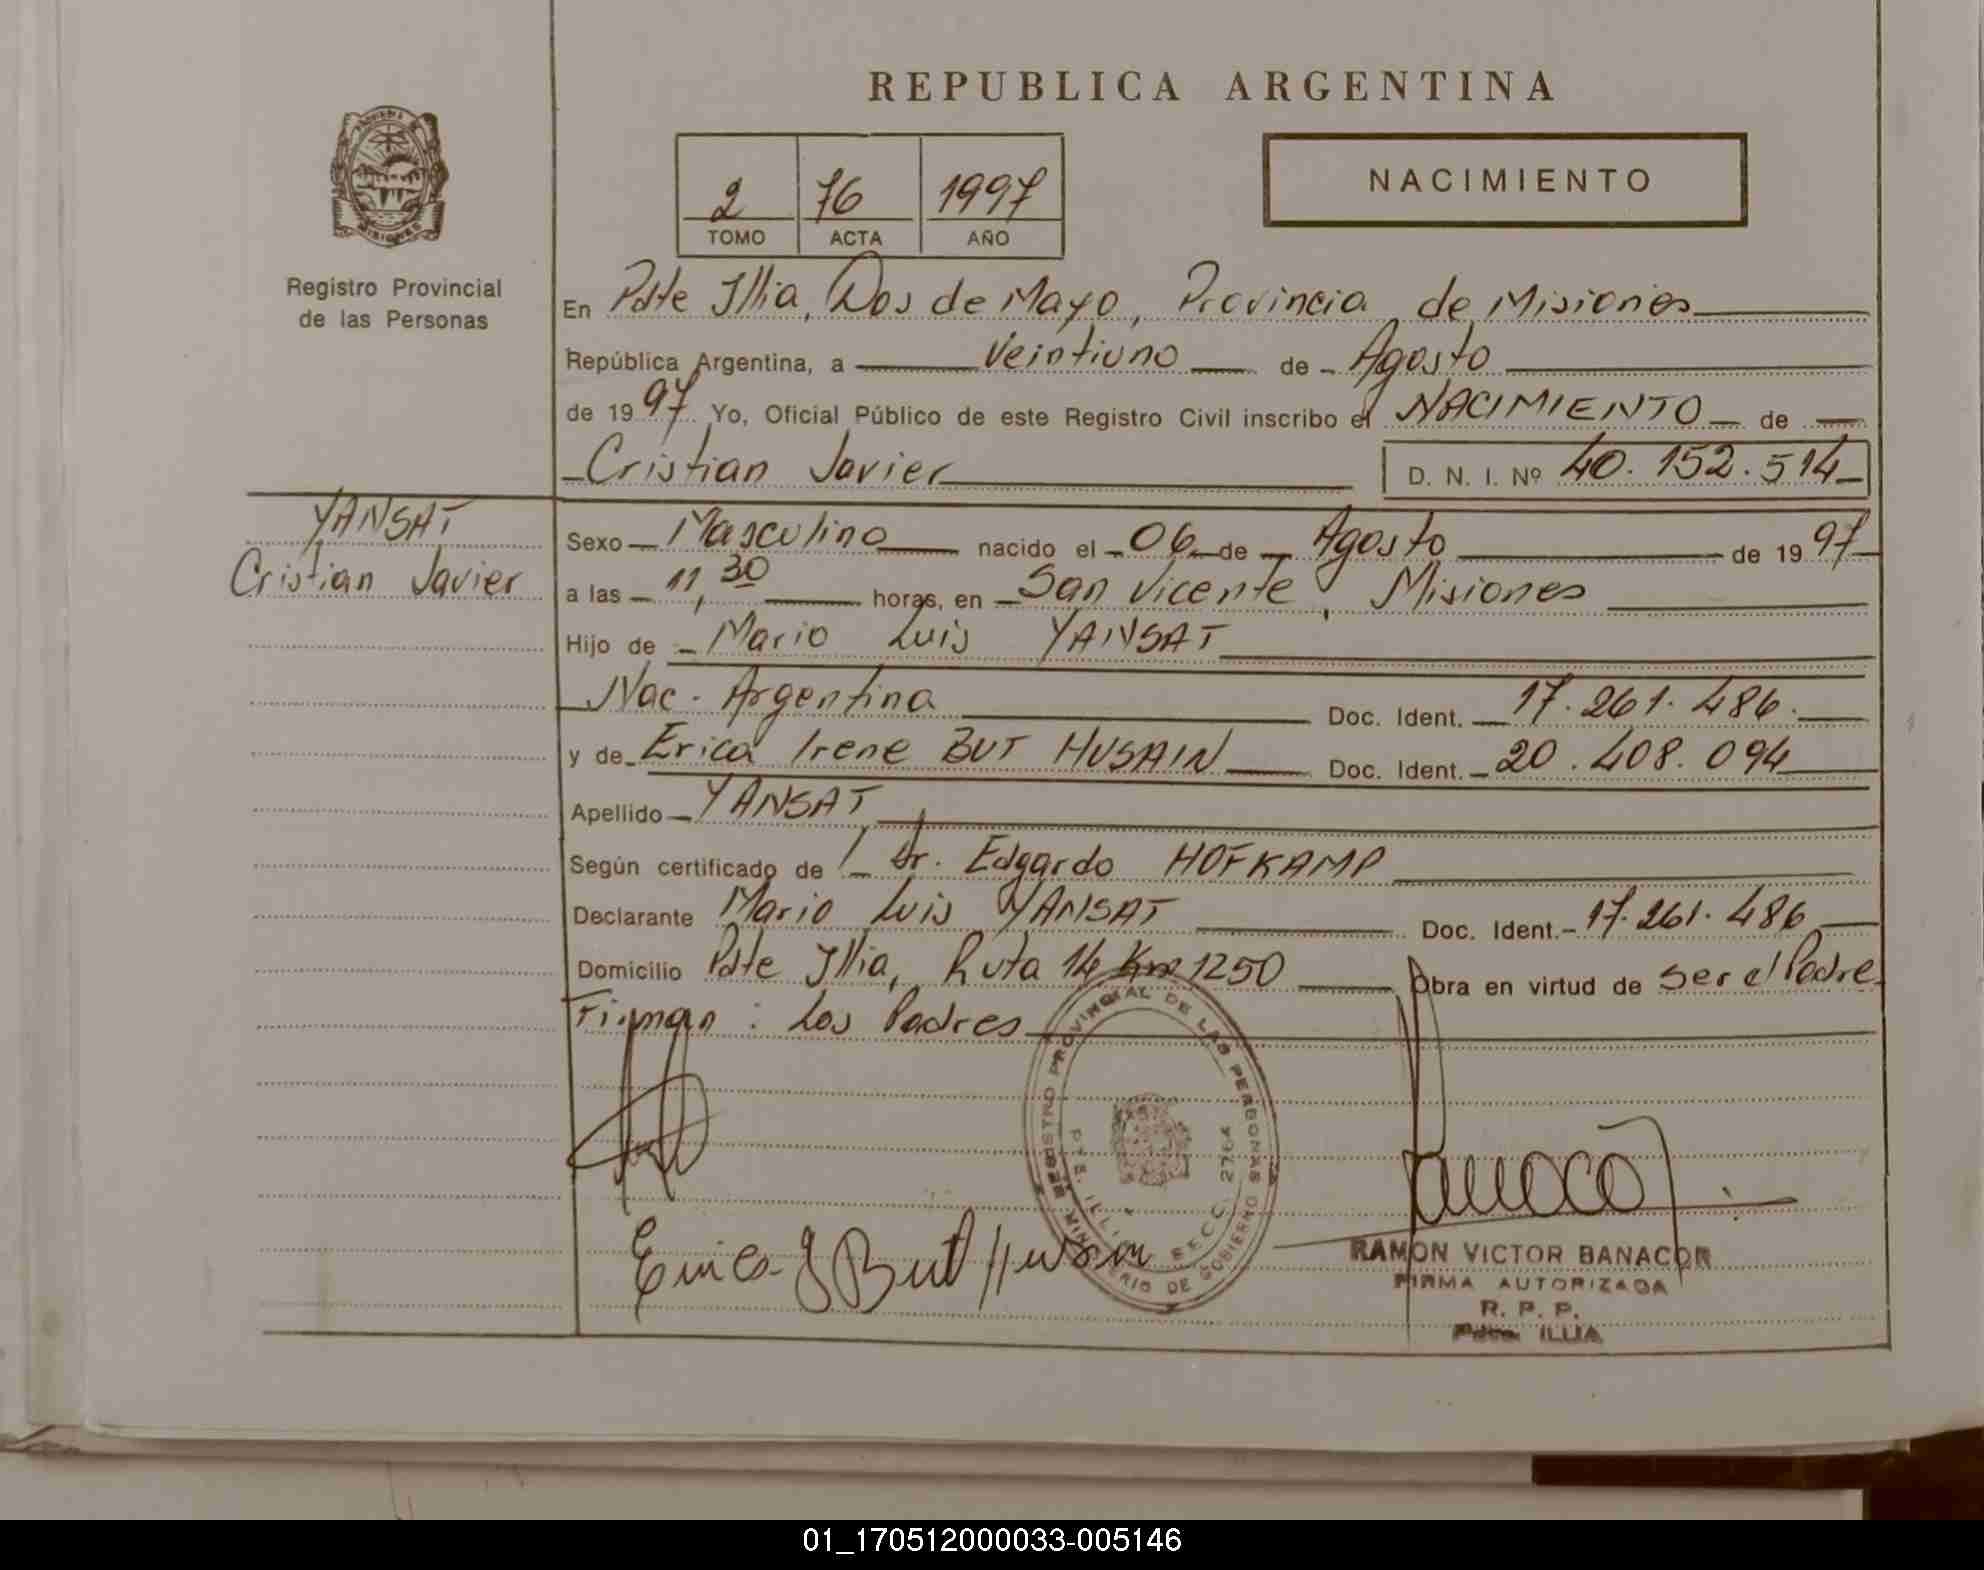 REPUBLICA ARGENTINA
NACIMIENTO
2 76 1997
TOMO ACTA AÑO
Registro Provincial
de las Personas
En Pdte Illia, Dos de Mayo, Provincia de Misiones
República Argentina, a Veintiuno de Agosto
de 1997 Yo, Oficial Público de este Registro Civil inscribo el NACIMIENTO de
Cristian Javier D. N. I. Nº 40.152.514
YANSAT
Cristian Javier
Sexo Masculino nacido el 06 de Agosto de 1997
a las 11,30 horas, en San Vicente, Misiones
Hijo de Mario Luis YANSAT
Nac. Argentina Doc. Ident. 17.261.486.
y de Erica Irene BUT HUSAIN Doc. Ident. 20.408.094
Apellido YANSAT
Según certificado de Dr. Edgardo HOFKAMP
Declarante Mario Luis YANSAT Doc. Ident. 17.261.486
Domicilio Pdte Illia, Ruta 14 Km 1250 Obra en virtud de Ser el Padre
Firman: Los Padres
REGISTRO PROVINCIAL DE LAS PERSONAS
MINISTERIO DE GOBIERNO
PTE. ILLIA SECC. 2764
Erica I But Husain
RAMON VICTOR BANACOR
FIRMA AUTORIZADA
R. P. P.
Pdte. ILLIA
01_170512000033-005146